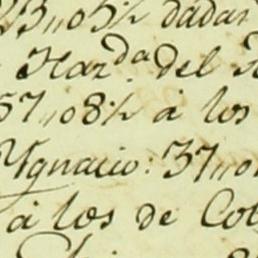 23,,05½ dadas
Haz.da del
57,,08½ á los
Ygnacio: 37,,0
á los de Co